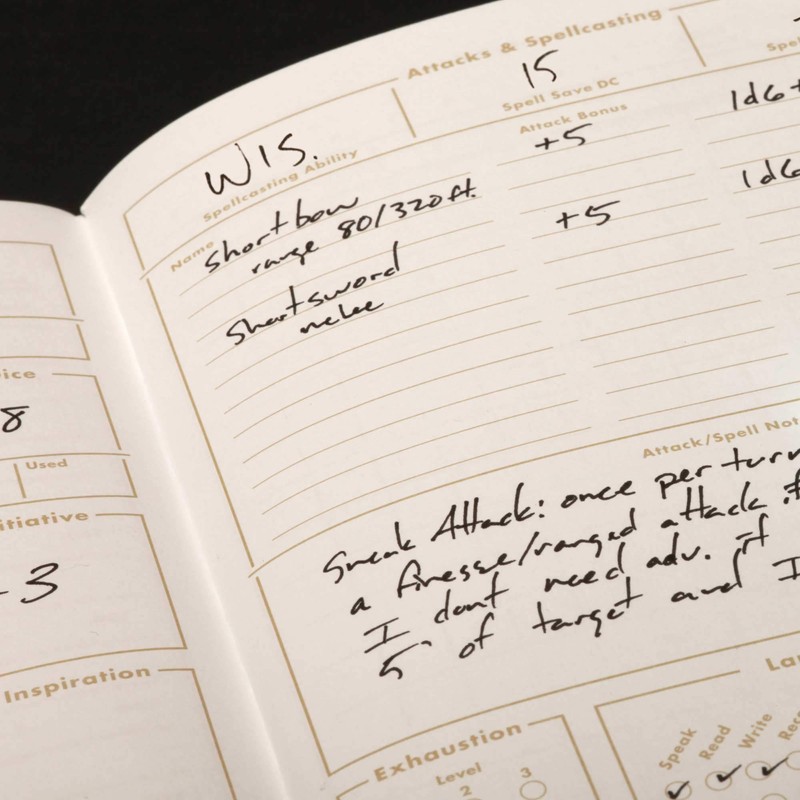 Attacks & Spellcasting
WIS.
Spellcasting Ability
15
Spell Save DC
Name
Attack Bonus
shortbow
range 80/320 ft.
+5
1d6+
shortsword
melee
+5
1d6
Attack/Spell Not
Sneak Attack: once per turn
a finesse/ranged attack if
I dont need adv. if
5' of target and I
8
Used
itiative
3
Inspiration
Exhaustion
Level
2
3
Lan
Speak
Read
Write